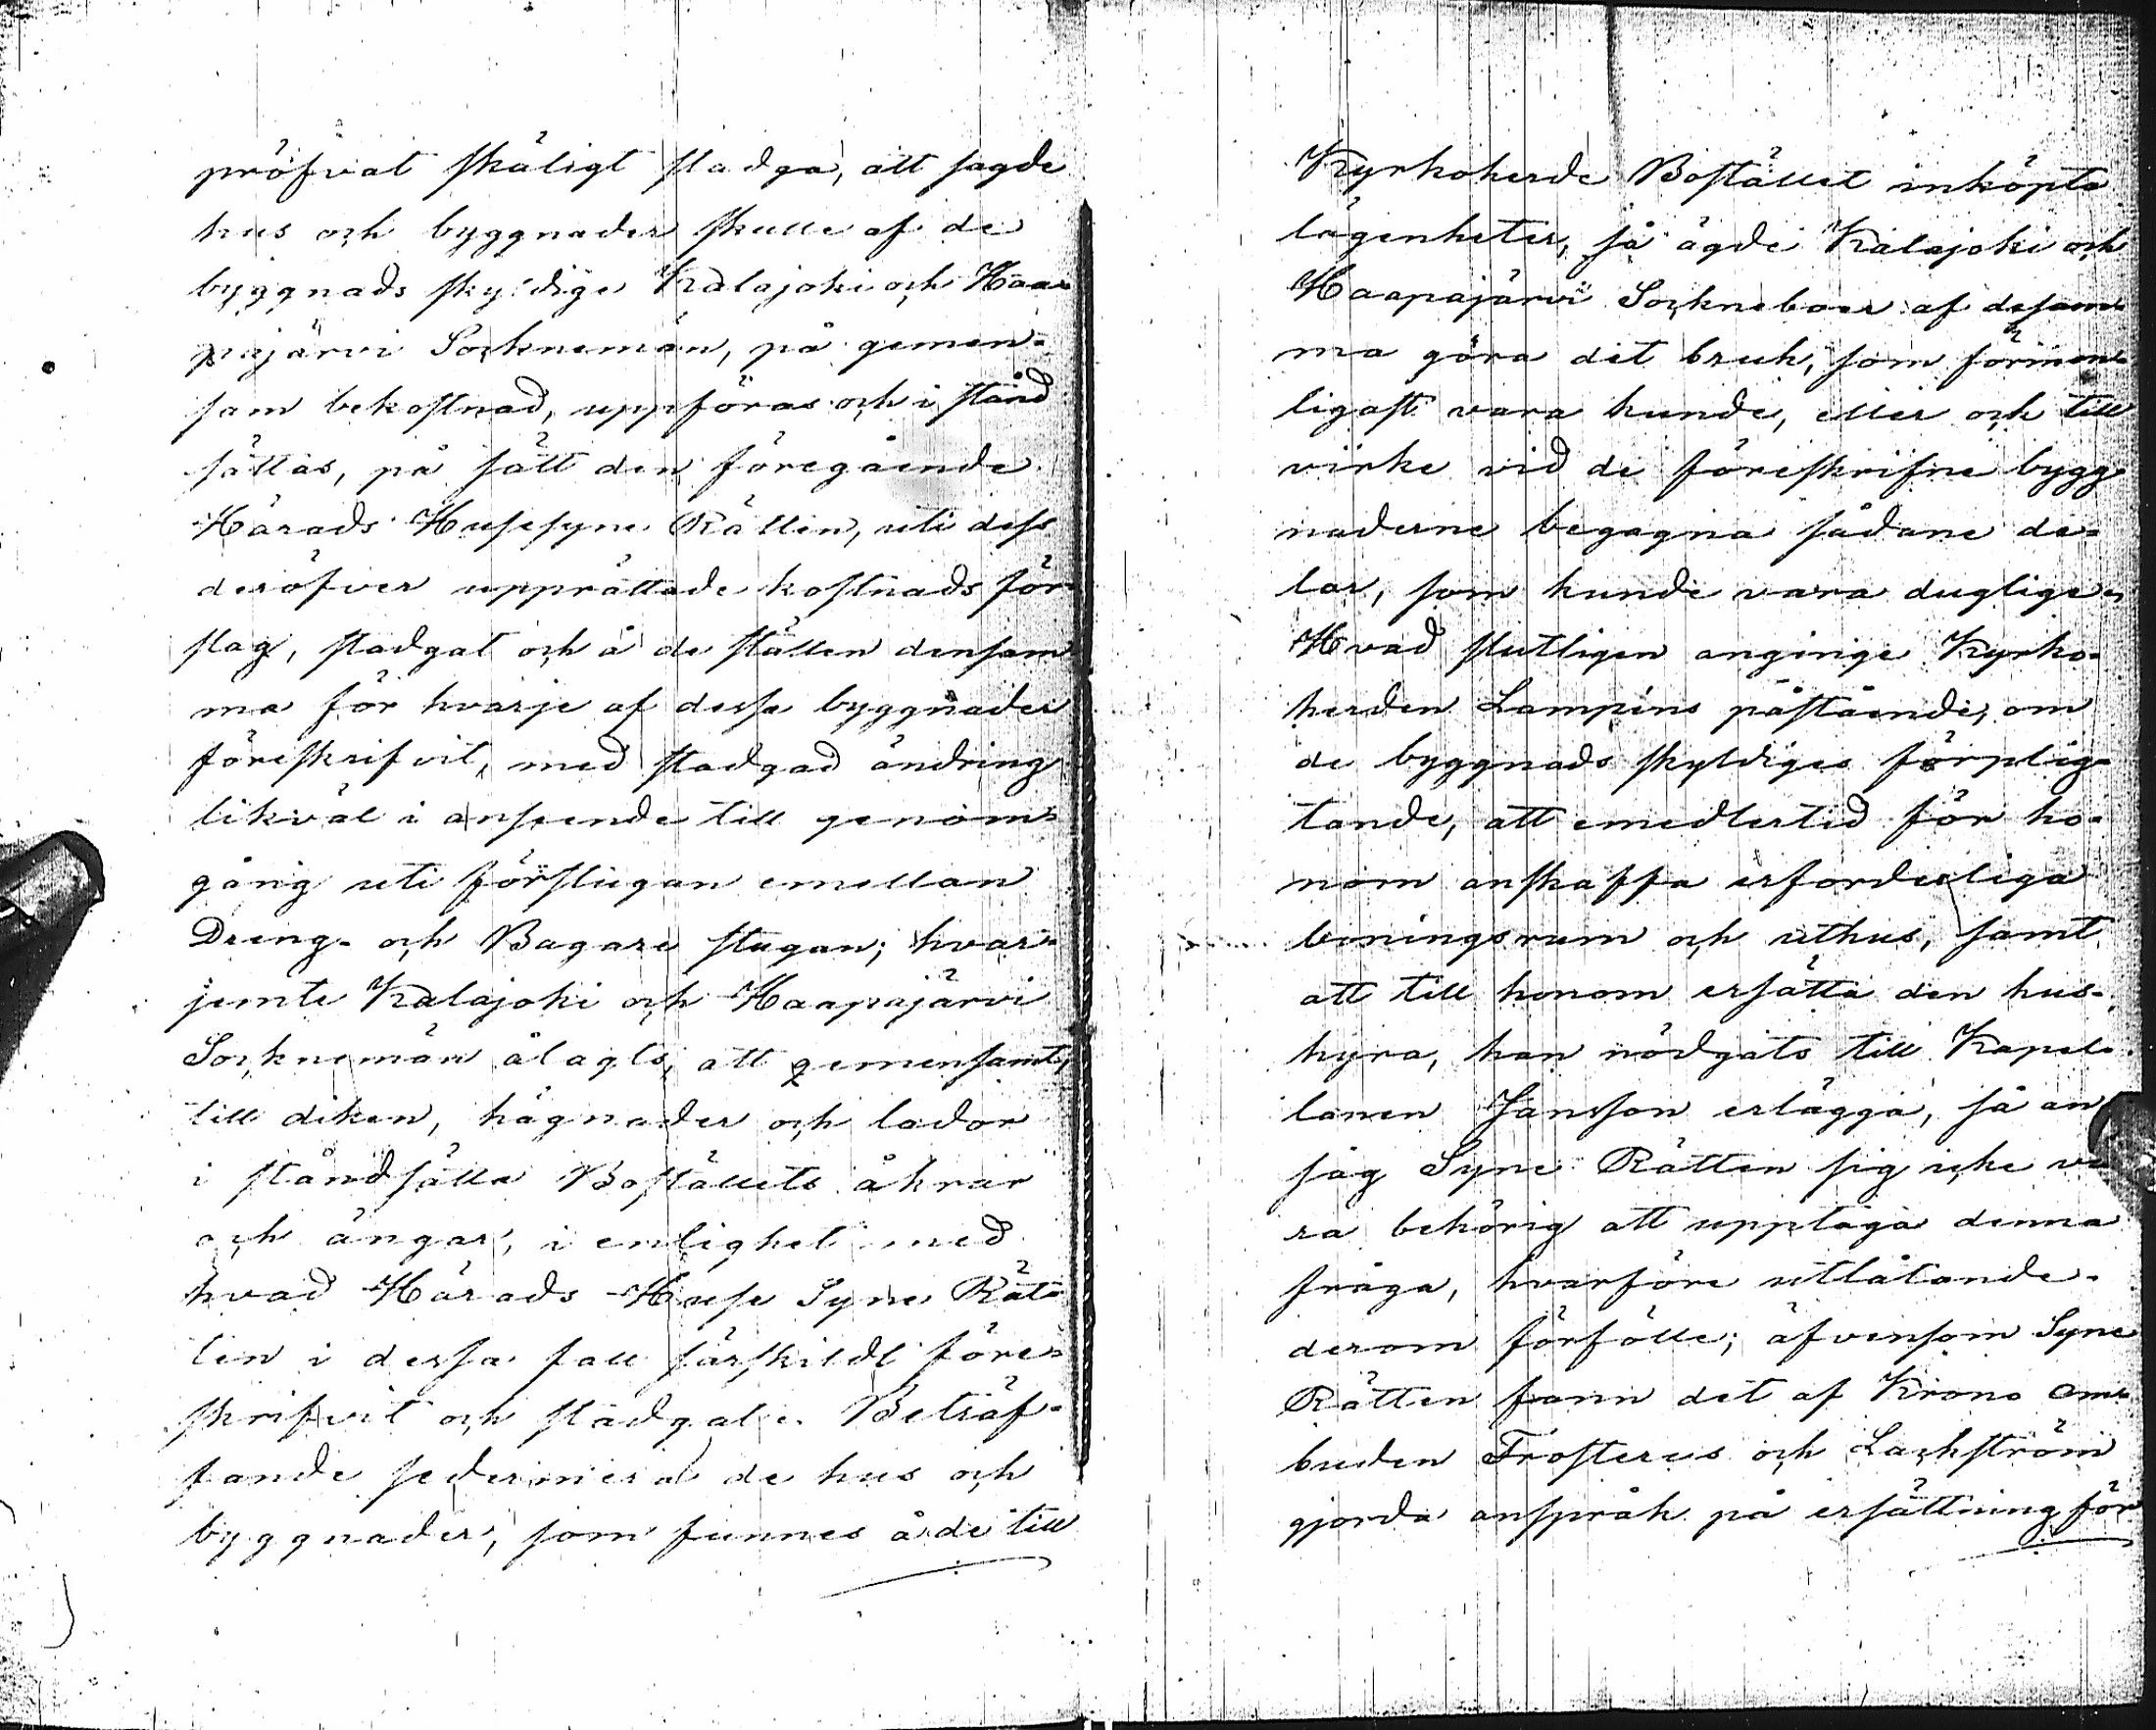 pröfvat skäligt stadga, att sagde
hus och byggnader skulle af de
byggnads skyldige Kalajoki och Haa-
pajärvi Socknemän, på gemen-
sam bekostnad, uppföras och i stånd
sättas, på sätt den föregående
Härads Husesyne Rätten, uti dess
deröfver upprättade kostnads för-
slag, stadgat och å de ställen densam-
ma för hvarje af dessa byggnader
föreskrifvit, med stadgad ändring
likväl i anseende till genom-
gång uti förstugan emellan
Dreng- och Bagare stugan; hvar-
jemte Kalajoki och Haapajärvi
Socknemän ålagts, att gemensamt,
till diken, hägnader och lador
i ståndsätta Boställets åkrar
och ängar, i enlighet med
hvad Härads Huse Syne Rät-
ten i dessa fall särskildt före-
skrifvit och stadgat. Beträf-
fande sedermera de hus och
byggnader, som funnes å de till
Kyrkoherde Bostället inköpta
lägenheter, så ägde Kalajoki och
Haapajärvi Sockneboer af desam-
ma göra det bruk, som förmon-
ligast vara kunde, eller och till
virke vid de föreskrifne bygg-
naderne begagna sådane de-
lar, som kunde vara duglige.
Hvad slutligen anginge Kyrko-
herden Lampéns påstående, om
de byggnads skyldiges förplig-
tande, att emedlertid för ho-
nom anskaffa erforderliga
boningsrum och uthus, samt
att till honom ersätta den hus-
hyra, han nödgats till Kapel-
lanen Jansson erlägga, så an
såg Syne Rätten sig icke va
ra behörig att upptaga denna
fråga, hvarföre utlåtande
derom förfölle; äfvensom Syne
Rätten fann det af Krono Om-
buden Frosterus och Lackström
gjorda anspråk på ersättning för